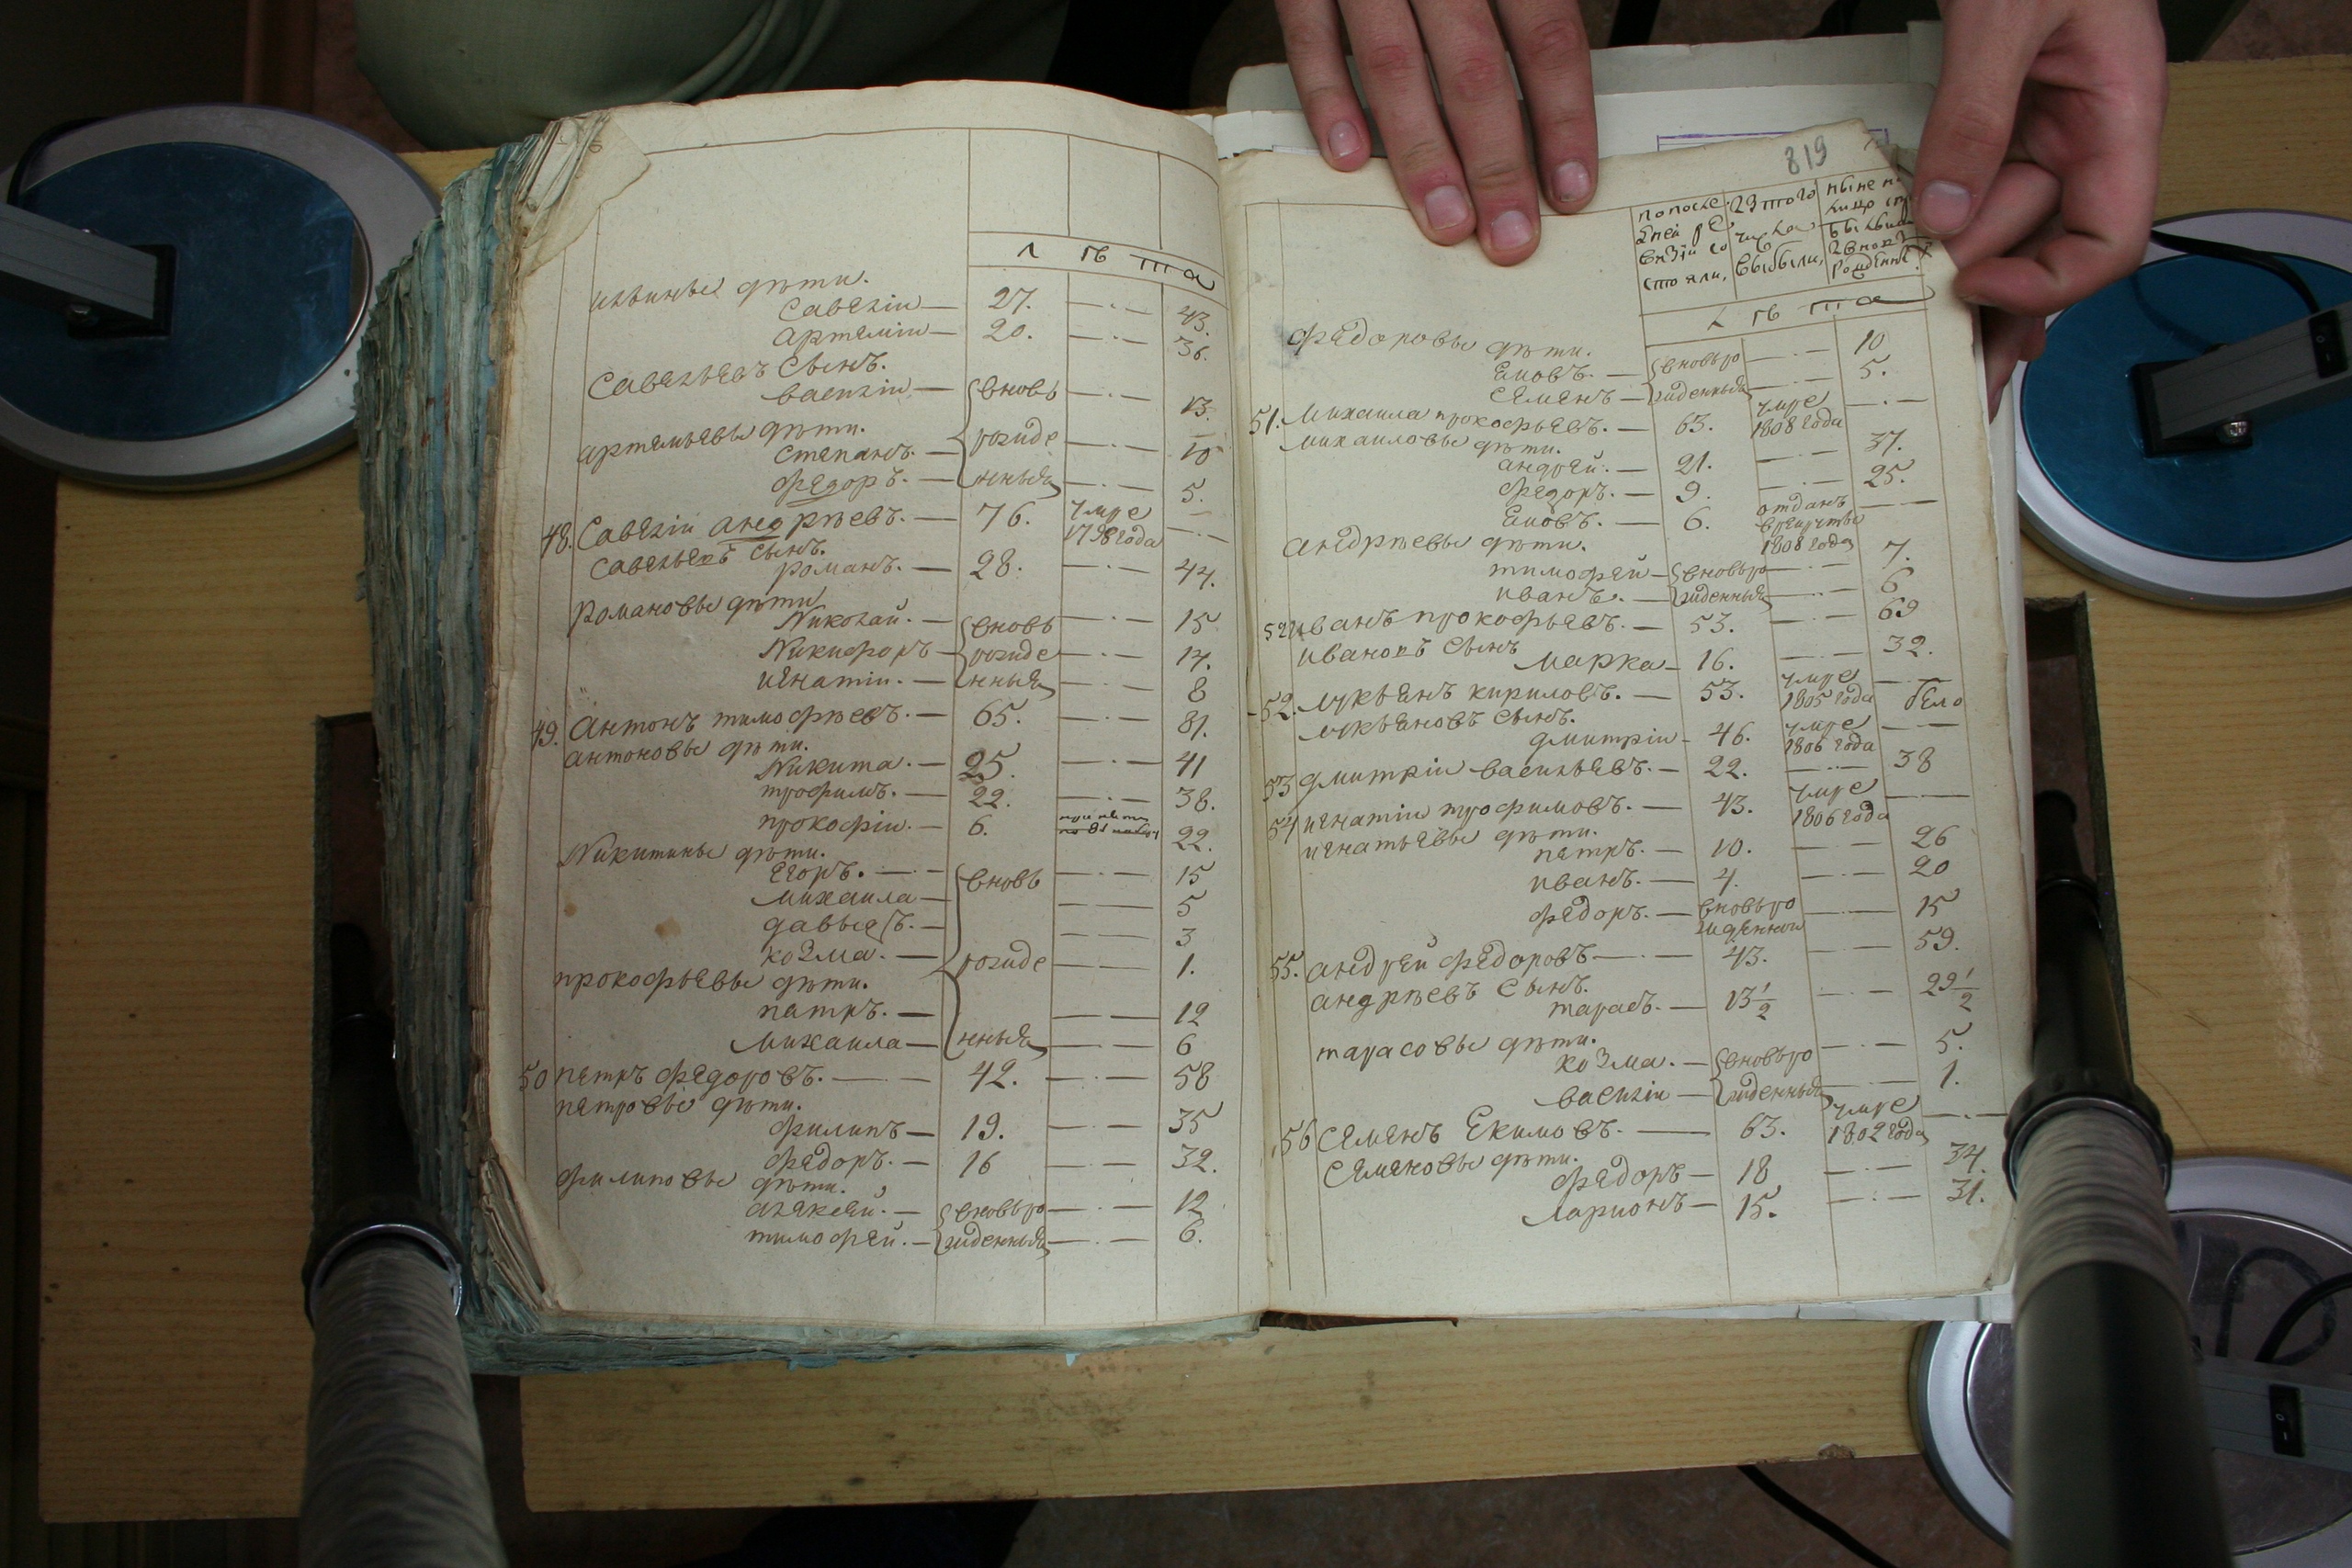 лѣта
дѣти.
Савелiи — 27. — · — 43.
артемiи — 20. — · — 36.
Савельевъ Сынъ.
василiи — вновь — · — 13.
артемьевы дѣти.
степанъ. — рожде — · — 10
Федоръ. — нныя — · — 5.
48. Савелiи андрѣевъ. — 76. умре 1798 года — · —
Савельевъ Сынъ.
романъ. — 28. — · — 44.
Романовы дѣти
Николай. — вновь — · — 15
Никифоръ — рожде — · — 14.
игнатiи. — нныя — · — 8
49. Антонъ тимофѣевъ. — 65. — · — 81.
антоновы дѣти.
Никита. — 25. — · — 41
трофимъ. — 22. — · — 38.
прокофiи. — 6. 22.
Никитины дѣти.
Егоръ. — · — вновь — · — 15
михаила — — · — 5
давыдъ. — — · — 3
козма. — рожде — · — 1.
прокофьевы дѣти.
петръ. — — · — 12
михаила — нныя — · — 6
50 петръ федоровъ. — · — 42. — · — 58
петровы дѣти.
филипъ — 19. — · — 35
федоръ. — 16 — · — 32.
филиповы дѣти.
алексей. — вновьро — · — 12
тимофей. — жденныя — · — 6.
819
попосле 2 Зтого ныне н
дней ре числа
визiи со
стояли, выбыли, рожденн
лѣта
Федоровы дѣти.
Еховъ. — вновьро — · — 10
Семенъ — жденныя — · — 5.
51. Михаила прокофьевъ. — 63. умре 1808 года — · —
михаиловы дѣти.
андрей. — 21. — · — 37.
федоръ. — 9. — · — 25.
— 6. отданъ врекруты 1808 года — · —
Андрѣевы дѣти.
тимофей — вновьро — · — 7.
иванъ. — жденныя — · — 6
52 иванъ прокофьевъ. — 53. — · — 69
ивановъ Сынъ
марка — 16. — · — 32.
52. лукьянъ кириловъ. — 53. умре 1805 года — · —
лукьяновъ Сынъ.
дмитрiи — 46. умре 1806 года — · —
53 дмитрiи васильевъ. — 22. — · — 38
54 игнатiи трофимовъ. — 43. умре 1806 года — · —
игнатьевы дѣти.
петръ. — 10. — · — 26
иванъ. — 4. — · — 20
федоръ. — вновьро жденныи — · — 15
55. андрей федоровъ — · — 43. — · — 59.
андрѣевъ Сынъ.
тарасъ. — 13 1/2 — · — 29 1/2
тарасовы дѣти.
козма. — вновьро — · — 5.
василiи — жденныя — · — 1.
56 Семенъ Екимовъ. — 63. умре 1802 года — · —
Семеновы дѣти.
федоръ — 18 — · — 34.
ларионъ — 15. — · — 31.